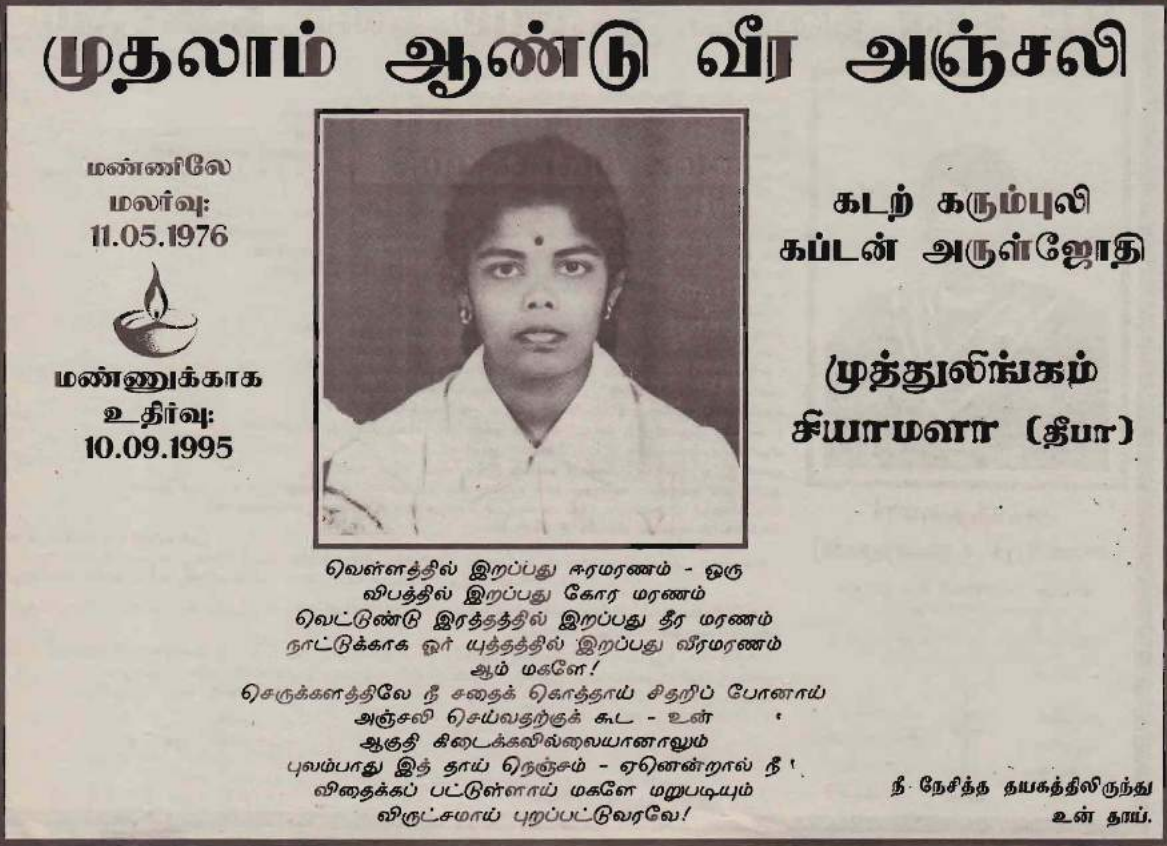 முதலாம் ஆண்டு வீர அஞ்சலி
மண்ணிலே
மலர்வு:
11.05.1976
மண்ணுக்காக
உதிர்வு:
10.09.1995
கடற் கரும்புலி
கப்டன் அருள்ஜோதி
முத்துலிங்கம்
சியாமளா (தீபா)
வெள்ளத்தில் இறப்பது ஈரமரணம் - ஒரு
விபத்தில் இறப்பது கோர மரணம்
வெட்டுண்டு இரத்தத்தில் இறப்பது தீர மரணம்
நாட்டுக்காக ஓர் யுத்தத்தில் இறப்பது வீரமரணம்
ஆம் மகளே!
செருக்களத்திலே நீ சதைக் கொத்தாய் சிதறிப் போனாய்
அஞ்சலி செய்வதற்குக் கூட - உன்
ஆகுதி கிடைக்கவில்லையானாலும்
புலம்பாது இத் தாய் நெஞ்சம் - ஏனென்றால் நீ
விதைக்கப் பட்டுள்ளாய் மகளே மறுபடியும்
விருட்சமாய் புறப்பட்டுவரவே!
நீ நேசித்த தயகத்திலிருந்து
உன் தாய்.